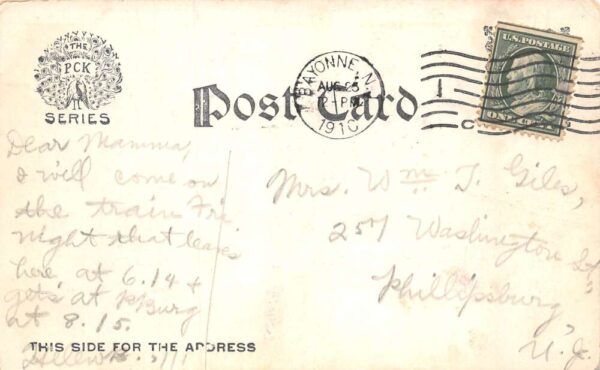 THE
PCK
SERIES
Post Card
BAYONNE, N.J.
AUG 25
2 PM
1910
U.S. POSTAGE
Dear Mamma,
I will come on
the train Fri.
night that leaves
here at 6.14 +
gets at P'Burg
at 8.15.
Helen
Mrs. Wm. T. Giles,
257 Washington St.
Phillipsburg,
N.J.
THIS SIDE FOR THE ADDRESS